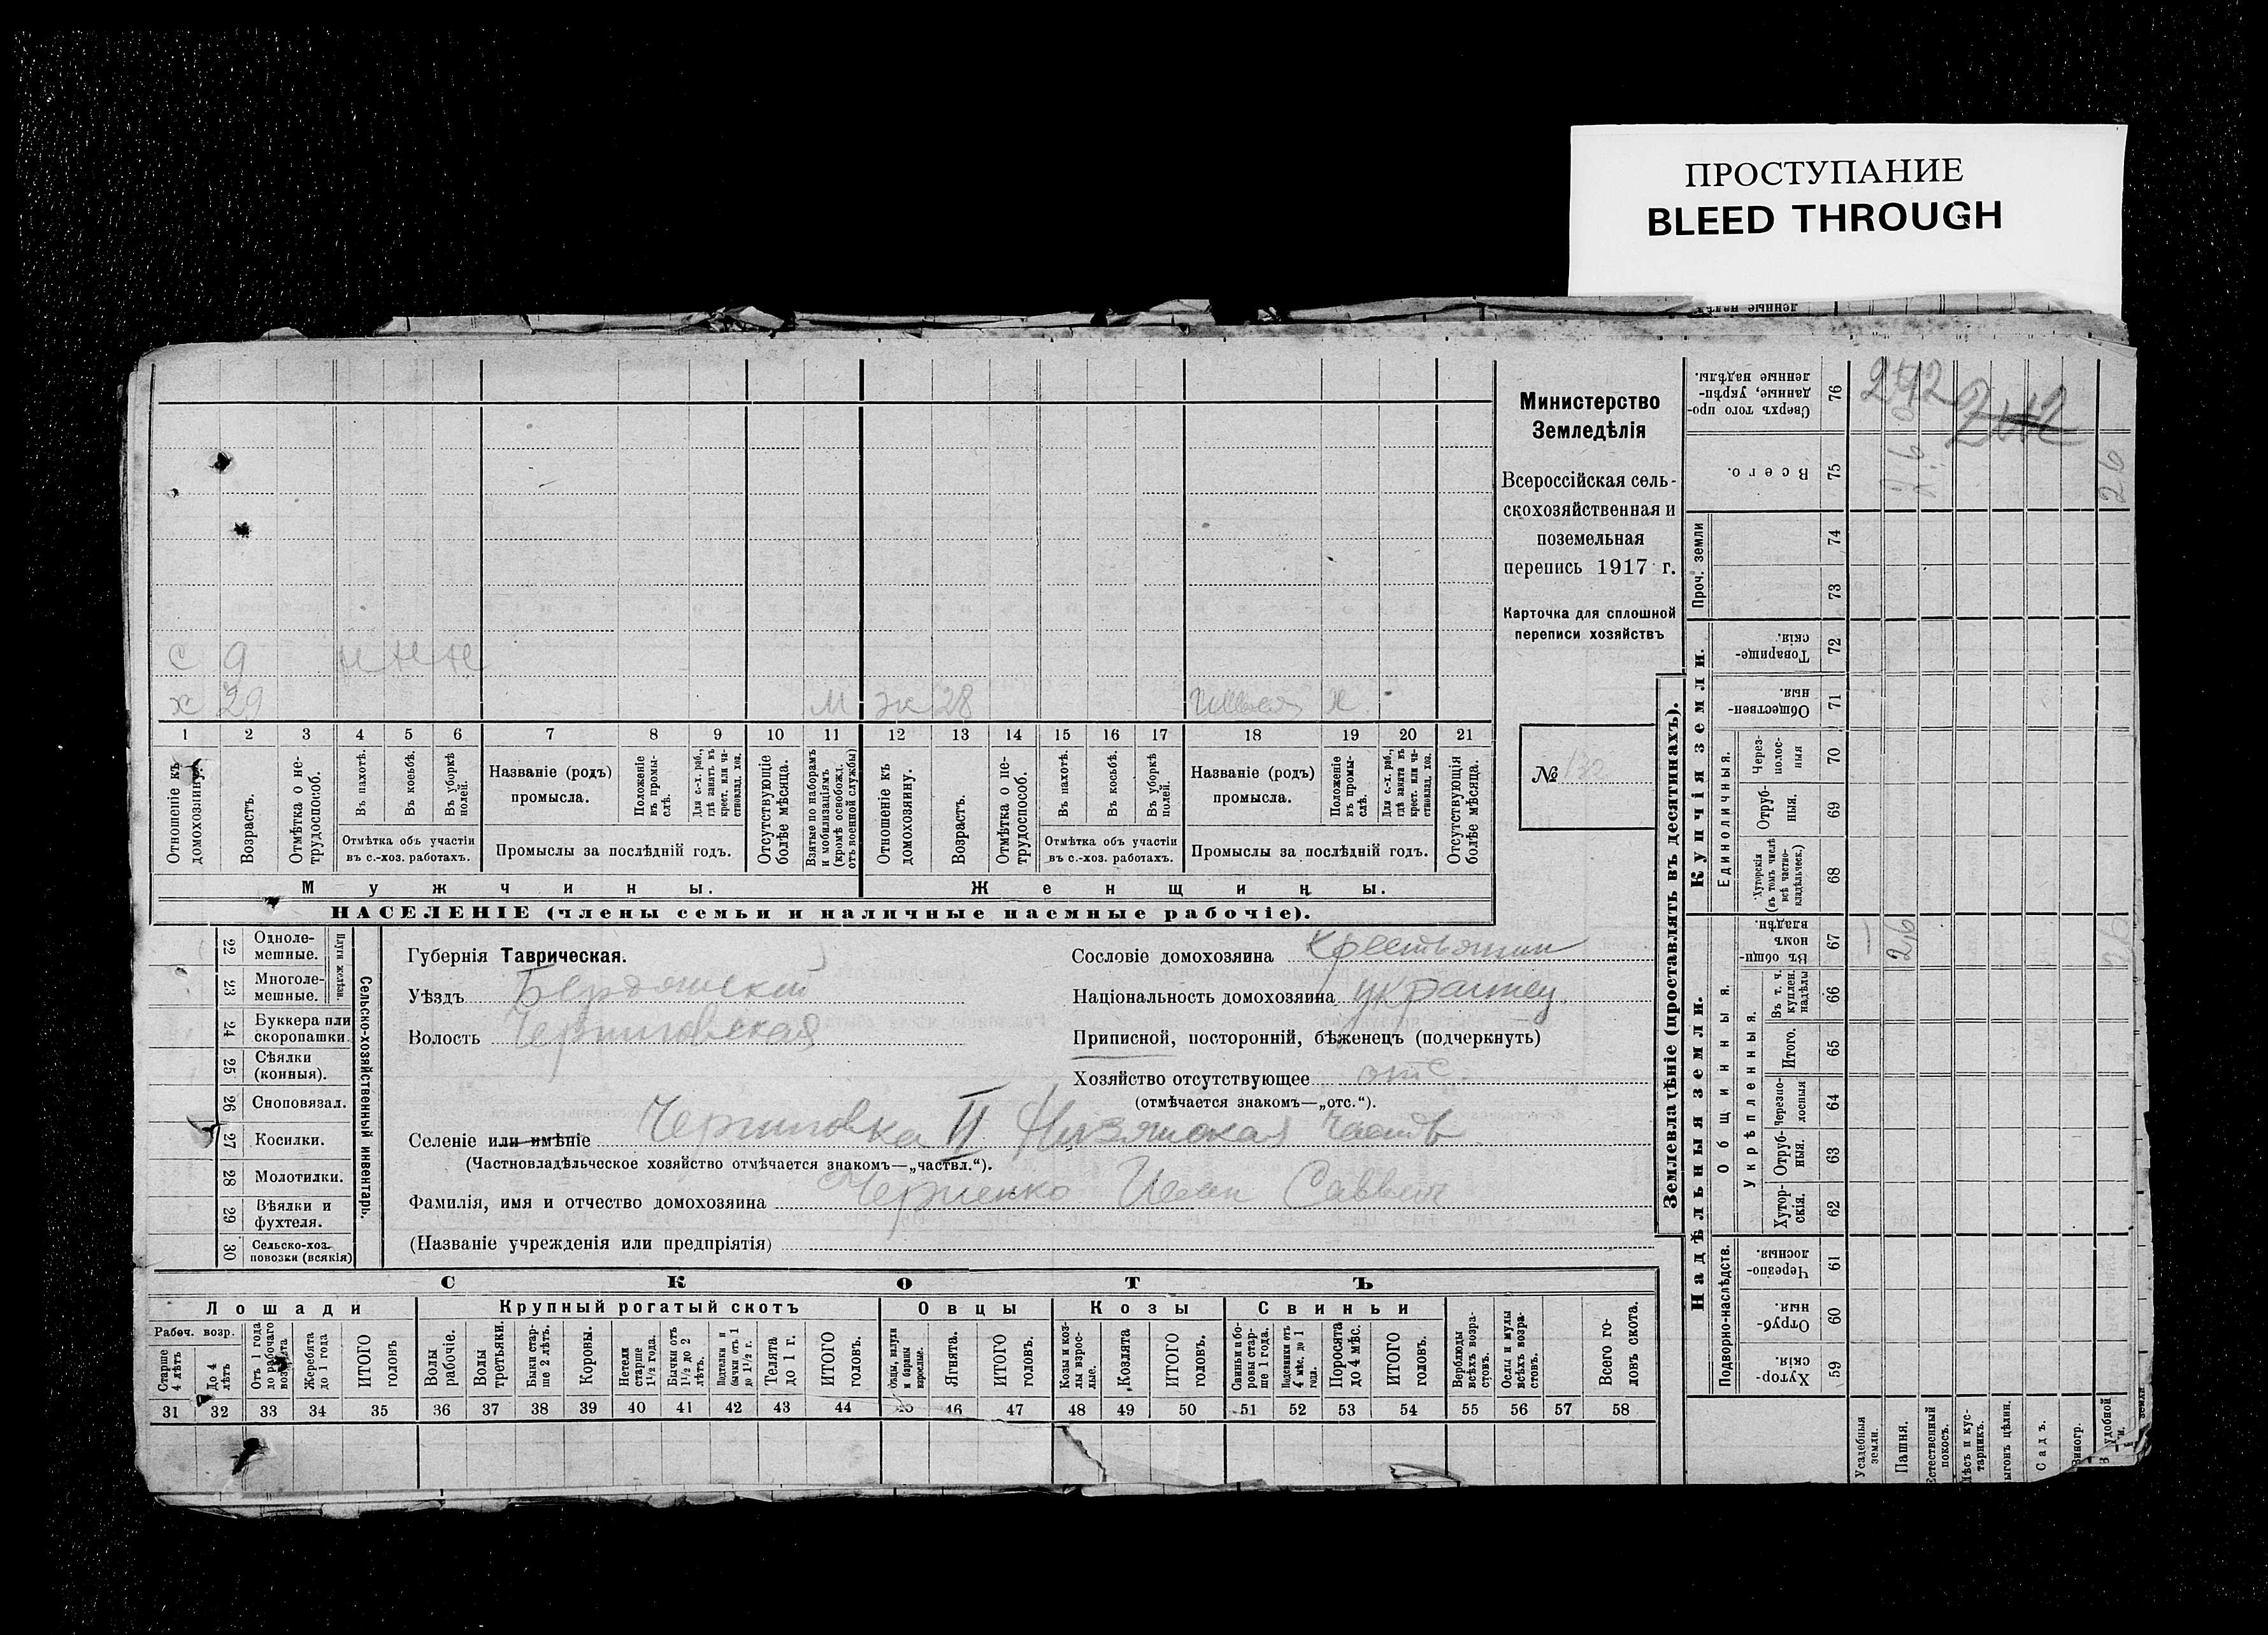 ПРОСТУПАНИЕ
BLEED THROUGH
с 9 н н н
х 29 М ж 28 Н
1 2 3 4 5 6 7 8 9 10 11 12 13 14 15 16 17 18 19 20 21
Отношеніе къ домохозяину.
Возрастъ.
Отмѣтка о нетрудоспособ.
Въ пахотѣ.
Въ косьбѣ.
Въ уборкѣ полей.
Отмѣтка объ участіи въ с.-хоз. работахъ.
Названіе (родъ) промысла.
Положеніе въ промыслѣ.
Для с.-х. раб., гдѣ занятъ въ крест. или частновлад. хоз.
Промыслы за послѣдній годъ.
Отсутствующіе болѣе мѣсяца.
Взятые по наборамъ и мобилизаціямъ (кромѣ освобожд. отъ военной службы)
Отношеніе къ домохозяину.
Возрастъ.
Отмѣтка о нетрудоспособ.
Въ пахотѣ.
Въ косьбѣ.
Въ уборкѣ полей.
Отмѣтка объ участіи въ с.-хоз. работахъ.
Названіе (родъ) промысла.
Положеніе въ промыслѣ.
Для с.-х. раб., гдѣ занята въ крест. или частновлад. хоз.
Промыслы за послѣдній годъ.
Отсутствующія болѣе мѣсяца.
Мужчины.
Женщины.
НАСЕЛЕНІЕ (члены семьи и наличные наемные рабочіе).
Министерство
Земледѣлія
Всероссійская сель-
скохозяйственная и
поземельная
перепись 1917 г.
Карточка для сплошной
переписи хозяйствъ
№ 132
22 Одноле-мешные.
23 Многоле-мешные.
Плуги желѣзн.
24 Буккера или скоропашки.
25 Сѣялки (конныя).
26 Сноповязал.
27 Косилки.
28 Молотилки.
29 Вѣялки и фухтеля.
30 Сельско-хоз. повозки (всякія)
Сельско-хозяйственный инвентарь.
Губернія Таврическая.
Уѣздъ Бердянский
Волость Черниговская
Сословіе домохозяина Крестьянин
Національность домохозяина украинец
Приписной, посторонній, бѣженецъ (подчеркнуть)
Хозяйство отсутствующее отс.
(отмѣчается знакомъ—„отс.“).
Селеніе или имѣніе Черниговка II Низянская часть
(Частновладѣльческое хозяйство отмѣчается знакомъ—„частвл.“).
Фамилія, имя и отчество домохозяина Черненко Иван Саввич
(Названіе учрежденія или предпріятія)
СКОТЪ
Лошади
Рабоч. возр.
Старше 4 лѣтъ
До 4 лѣтъ
Отъ 1 года до рабочаго возраста
Жеребята до 1 года
ИТОГО головъ
Крупный рогатый скотъ
Волы рабочіе.
Волы третьяки.
Быки старше 2 лѣтъ.
Коровы.
Нетели старше 1½ года.
Бычки отъ 1½ до 2 лѣтъ.
Подтелки и бычки отъ 1 до 1½ г.
Телята до 1 г.
ИТОГО головъ.
Овцы
Овцы, валухи и бараны взрослые.
Ягнята.
ИТОГО головъ.
Козы
Козы и козлы взрослые.
Козлята
ИТОГО головъ.
Свиньи
Свиньи и боровы старше 1 года.
Подсвинки отъ 4 мѣс. до 1 года.
Поросята до 4 мѣс.
ИТОГО головъ.
Верблюды всѣхъ возрастовъ.
Ослы и мулы всѣхъ возрастовъ.
Всего головъ скота.
31 32 33 34 35 36 37 38 39 40 41 42 43 44 45 46 47 48 49 50 51 52 53 54 55 56 57 58
Землевладѣніе (проставлять въ десятинахъ).
Надѣльныя земли.
Купчія земли.
Проч. земли
Подворно-наслѣдств.
Общинныя.
Укрѣпленныя.
Единоличныя.
76 Сверхъ того проданные, укрѣпленные надѣлы.
242 242
75 Всего.
26
74
73
72 Товарищескія.
71 Общественныя.
70 Черезполосныя
69 Отрубныя.
68 Хуторскія (въ томъ числѣ всѣ частновладѣльческ.)
67 Въ общинномъ владѣн.
— 2,6
66 Въ т. ч. куплен. надѣлы
65 Итого.
64 Черезполосныя
63 Отрубныя.
62 Хуторскія.
61 Черезполосныя.
60 Отрубныя.
59 Хуторскія.
Усадебныя земли.
Пашня.
Естественный покосъ.
Лѣсъ и кустарникъ.
Выгонъ цѣлин.
Садъ.
Виногр.
удобной